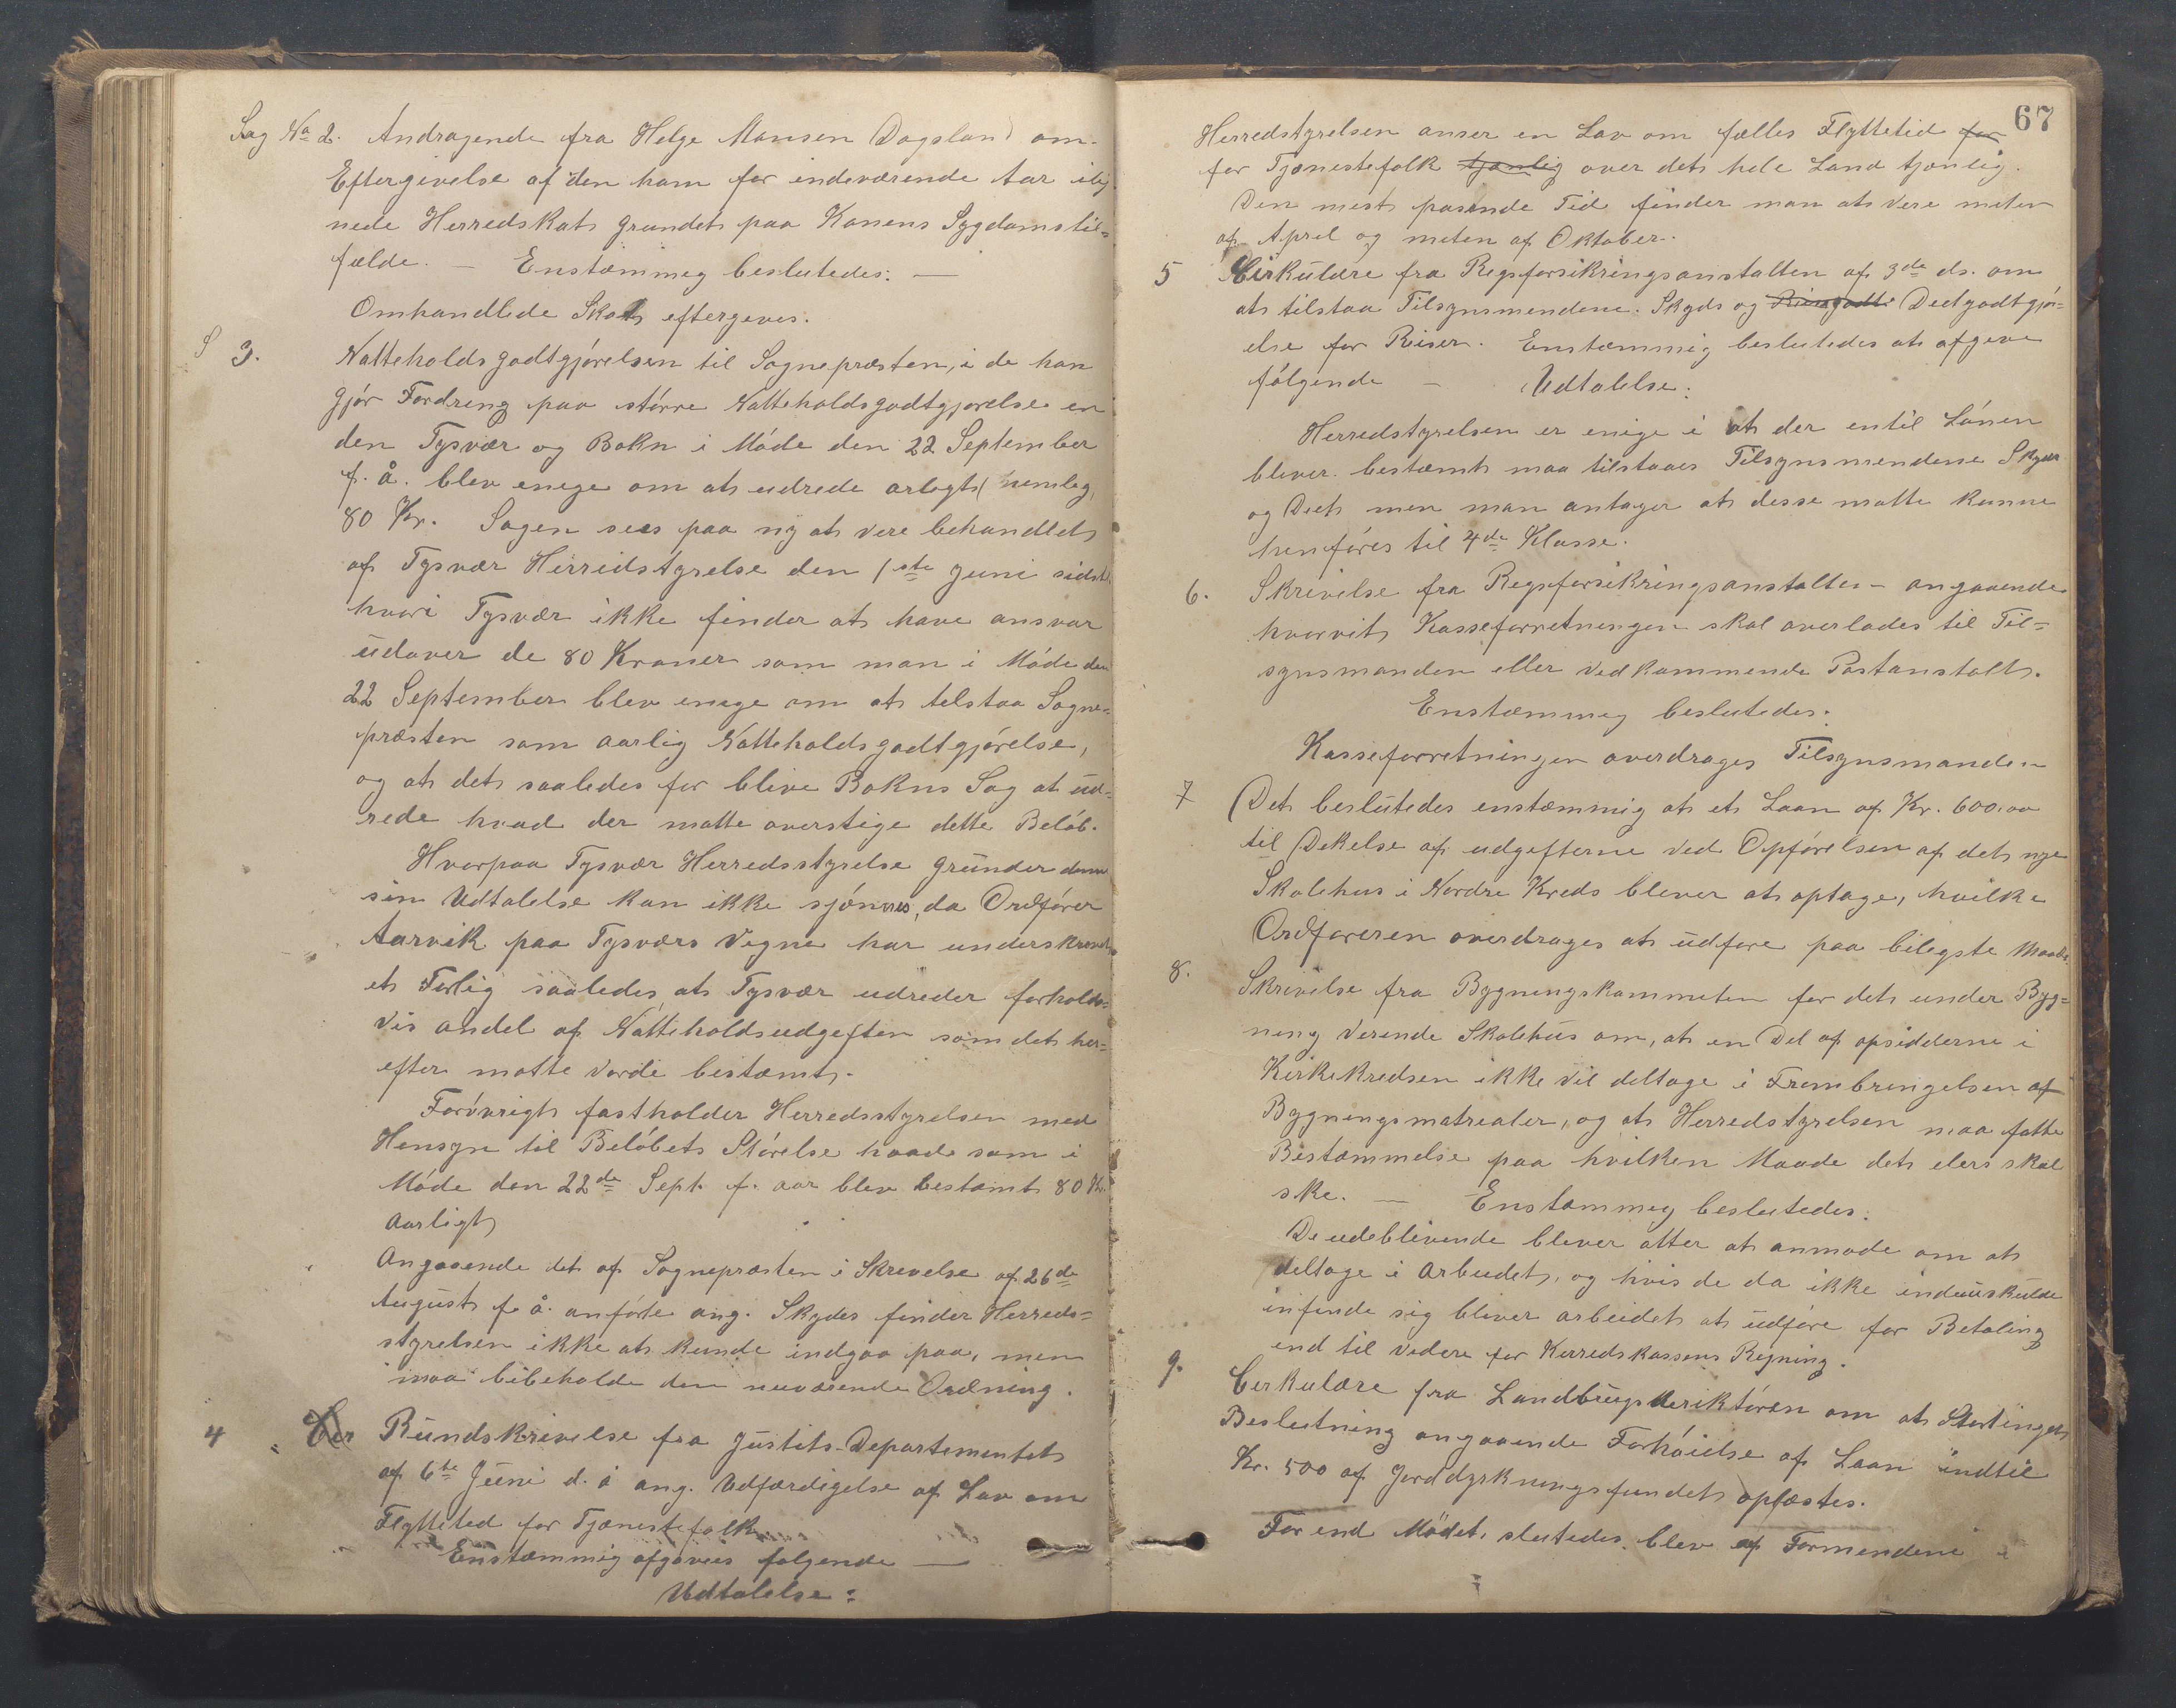 Sag No 2. Andragende fra Helge Monsen Dagsland om
Eftergivelse af den ham for indeværende Aar ilig
nede Herredskat grundet paa Konens Sygdomstil=
fælde. — Enstæmmeg beslutedes: —
Omhandlede Skat eftergeves.
3. Natteholdsgodtgjörelsen til Sognepræsten, i de han
gjör Fordreng paa större Natteholdsgodtgjörelse en
den Tysvær og Bokn i Möde den 22 September
f. å. blev enege om at udrede arlegt (nemleg
80 Kr. Sagen sees paa ny at vere behandlet
af Tysvær Herredstyrelse den 1ste Juni sidst.
hvori Tysvær ikke finder at have ansvar
udover de 80 Kroner som man i Möde den
22 September blev enege om at telstaa Sogne=
præsten som aarlig Natteholdsgodtgjörelse,
og at det saaledes for blive Bokns Sag at ud=
rede hvad der matte overstige dette Belöb.
Hvorpaa Tysvær Herredsstyrelse grunder denne
sin Udtalelse kan ikke sjönnes, da Ordförer
Aarvik paa Tysværs Vegne har underskrevet
et Forlig saaledes, at Tysvær udreder forholds=
vis andel af Natteholdsudgeften som det her=
efter matte vorde bestæmt.
Forövrigt fastholder Herredsstyrelsen med
Hensyn til Belöbets Störelse hvad som i
Möde den 22de Sept. f. aar blev bestemt 80 Kr.
Aarligt
Angaaende det af Sognepræsten i Skrevelse af 26de
August f. å. anförte ang. Skydes finder Herreds=
styrelsen ikke at kunde indgaa paa, men
maa bibeholde den nuværende Ordning.
4 Cer Rundskrivelse fra Justits-Departementet
af 6te Juni d. å ang. Udfærdigelse af Lov om
Flyttetid for Tjænestefolk
Enstæmmig afgaves folgende —
Udtalelse:
67
Herredstyrelsen anser en Lov om fælles Flyttetid for
for Tjænestefolk tjænlig over det hele Land tjænlig.
Den mest pasende Tid finder man at vere meten
af April og meten af Oktober.
5 Cirkulære fra Regsforsikringsanstalten af 3de ds. om
at tilstaa Tilsynsmendene Skyds og Dietgodtgjör=
else for Reiser. Enstæmmig beslutedes at afgeve
fölgende — Udtalelse:
Herredstyrelsen er enige i at der entil Lönen
blever bestæmt maa tilstaaes Tilsynsmendene Skyds
og Diet men man antager at desse matte kunne
henföres til 4de Klasse.
6. Skrivelse fra Regsforsikringsanstalten angaaende
hvorvit Kasseforretningen skal overlades til Til=
synsmanden eller vedkommende Postanstalt.
Enstæmmeg beslutedes:
Kasseforretningen overdrages Tilsynsmanden
7 Det beslutedes enstæmmig at et Laan af Kr. 600.00
til Dekelse af udgefterne ved Opförelsen af det nye
Skolehus i Nordre Kreds blever at optage, hvilke
Ordföreren overdrages at udföre paa bilegste Maade.
8. Skrivelse fra Bygningskommeten for det under Byg=
neng verende Skolehus om, at en Del af opsidderne i
Kirkekredsen ikke vil deltage i Frembrengelsen af
Bygnengsmatrealer, og at Herredstyrelsen maa fatte
Bestæmmelse paa hvilken Maade det elers skal
ske. — Enstæmmeg beslutedes:
De udeblivende blever atter at anmode om at
deltage i Arbeidet, og hvis de da ikke
infinde sig bliver arbeidet at udföre for Betaling
end til vedere for Herredskassens Regning.
9. Cerkulære fra Landbrugsderiktören om at Stortingets
Beslutning angaaende Forhöielse af Laan indtil
Kr. 500 af Jorddyrkningsfundet oplæstes.
For end Mödet slutedes blev af Formendene